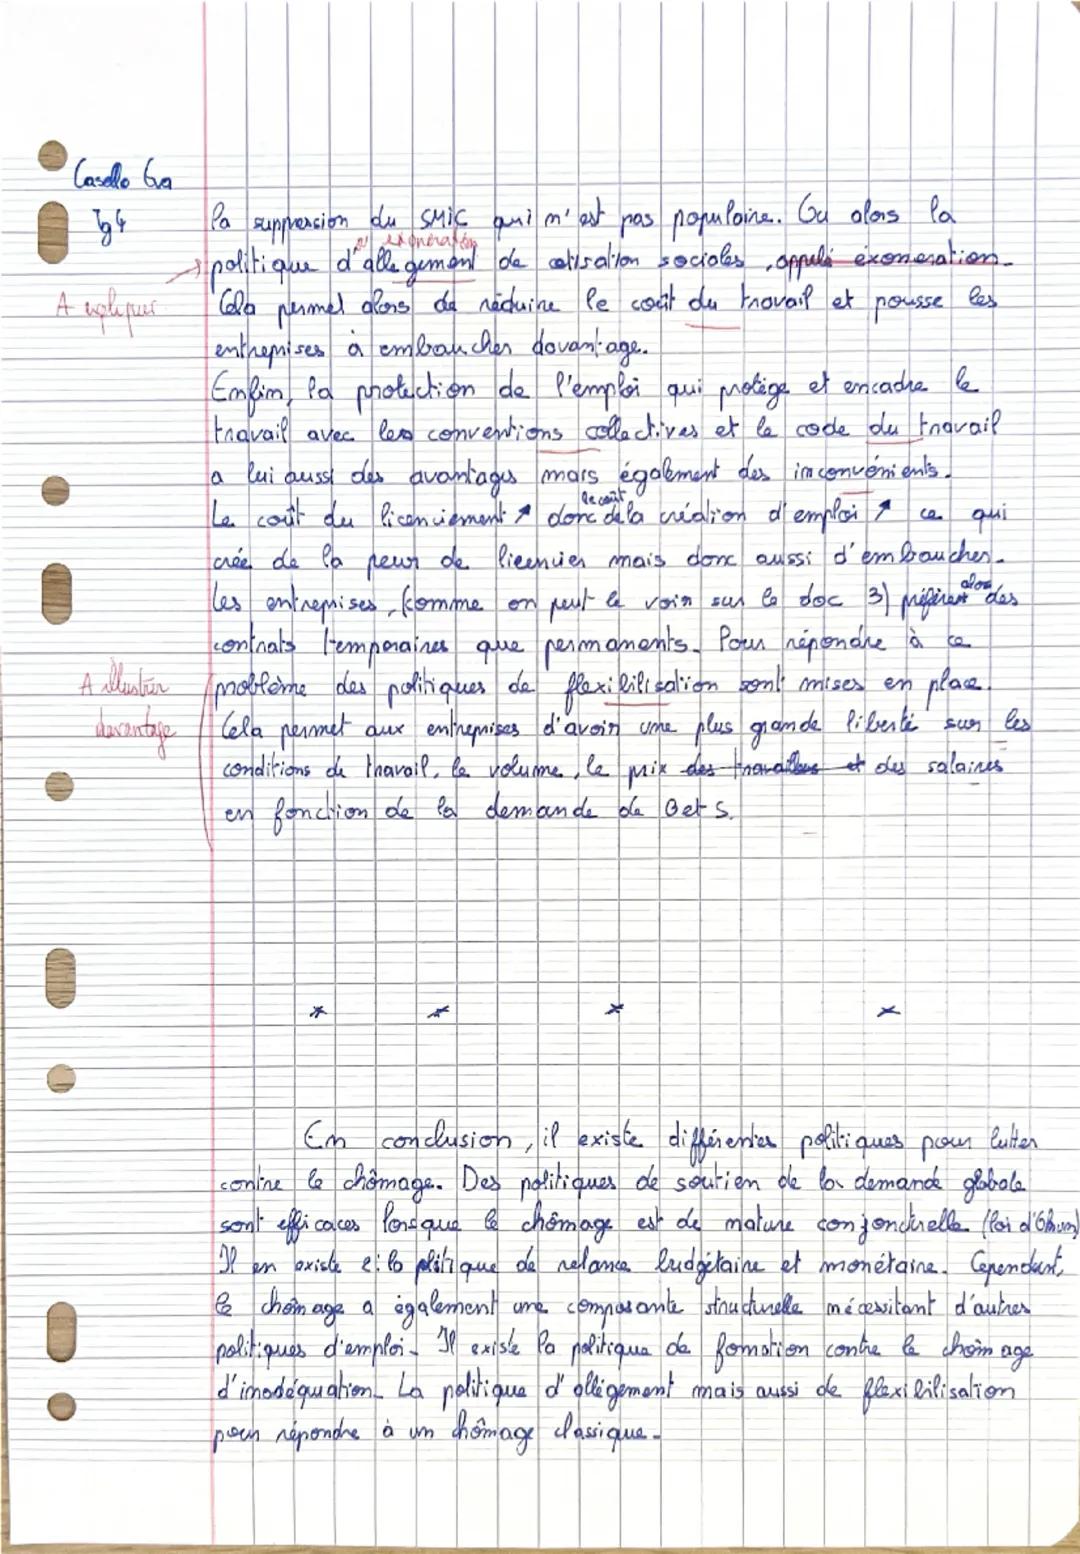 Casello Eva
Tg4
la suppression du SMIC qui n'est pas populaire. Ou alors la
exonération
politique d'allegement de cotisation sociales, appelé exoneration.
A expliquer
Cela permet alors de réduire le coût du travail et pousse les
entreprises à embaucher davantage.
Enfin, la protection de l'emploi qui protège et encadre le
travail avec les conventions collectives et le code du travail
a lui aussi des avantages mais également des inconvénients.
le coût
Le coût du licenciement ↗ donc de la création d'emploi ↗ ce qui
crée de la peur de licencier mais donc aussi d'embaucher.
alors
les entreprises, (comme on peut le voir sur le doc 3) préfèrent des
contrats temporaires que permanents. Pour répondre à ce
A illustrer
problème des politiques de flexibilisation sont mises en place.
davantage
Cela permet aux entreprises d'avoir une plus grande liberté sur les
conditions de travail, le volume, le prix des travailleurs et des salaires
en fonction de la demande de B et S.
* * * *
En conclusion, il existe différentes politiques pour lutter
contre le chômage. Des politiques de soutien de la demande globale
sont efficaces lorsque le chômage est de nature conjoncturelle (loi d'Okun)
Il en existe 2: la politique de relance budgétaire et monétaire. Cependant,
le chômage a également une composante structurelle nécessitant d'autres
politiques d'emploi. Il existe la politique de formation contre le chômage
d'inadéquation. La politique d'allégement mais aussi de flexibilisation
pour répondre à un chômage classique.